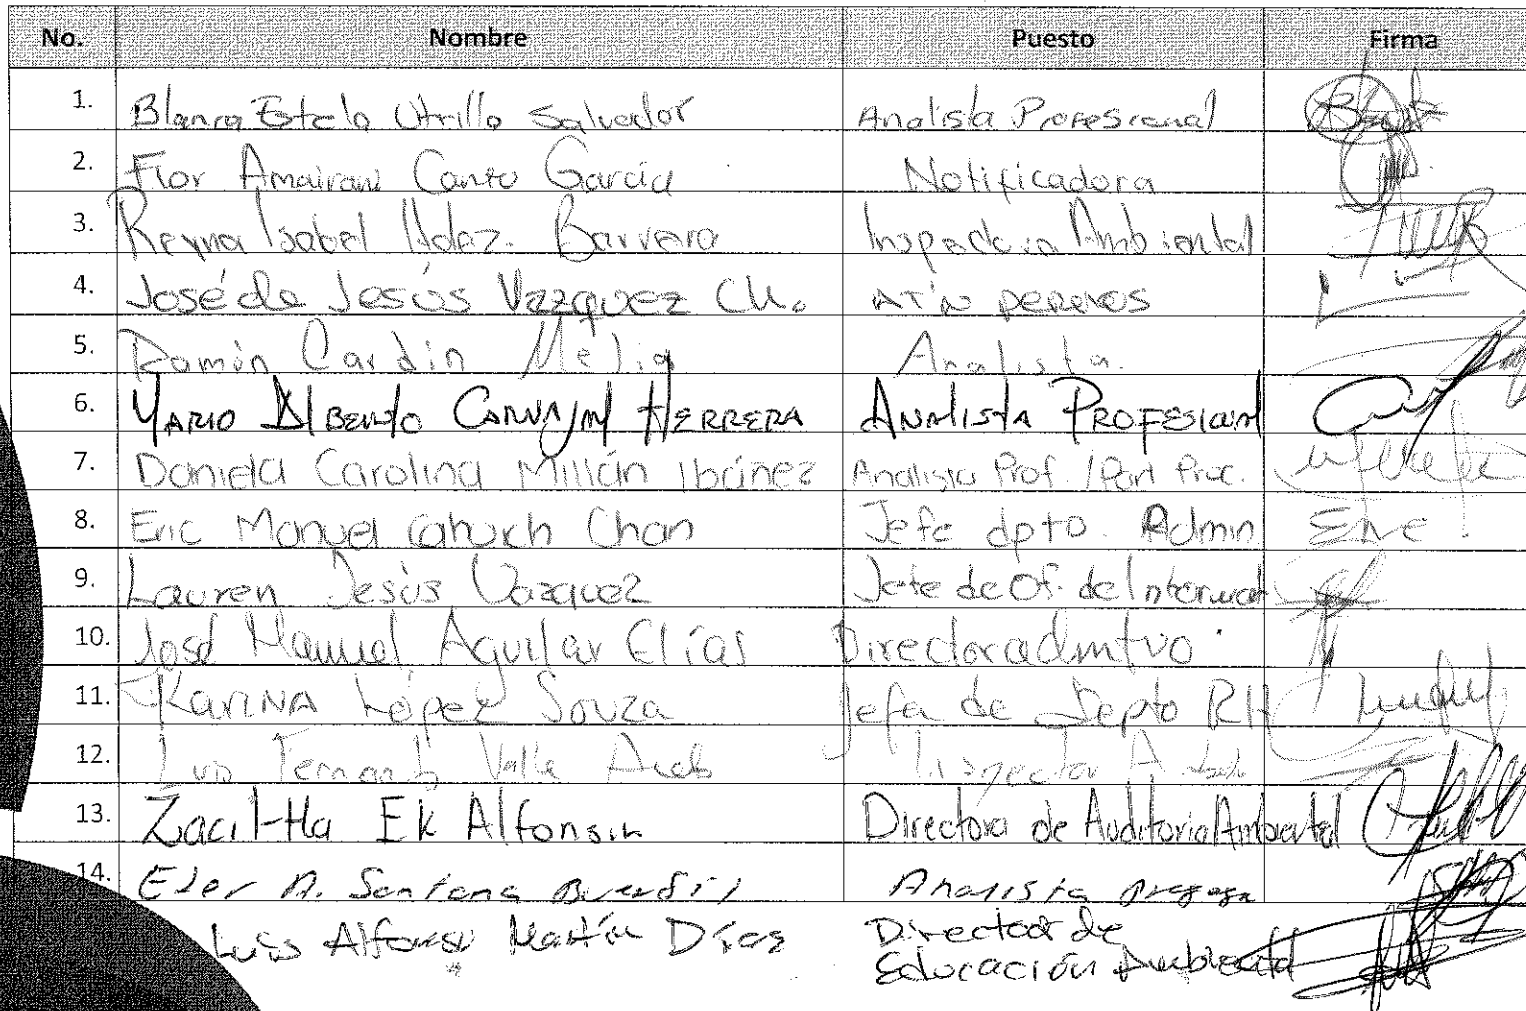 No. Nombre Puesto Firma
1. Blanca Estela Utrillo Salvador Analista Profesional
2. Flor Amairani Canto García Notificadora
3. Reyna Isabel Hdez. Barrera Inspectora Ambiental
4. José de Jesús Vazquez Ch.
5. Ramón Cardin Melig Analista.
6. Mario Alberto Carvajal Herrera Analista Profesional
7. Daniela Carolina Millán Ibáñez Analista Prof. /
8. Eric Manuel Cahuich Chan Jefe dpto. Admin Eric
9. Lauren Jesús Vazquez Jefe de Of. de Informat
10. José Manuel Aguilar Elías Director admtvo
11. Karina López Souza Jefa de Depto RH
12. Luis Fernando Valle Inspector
13. Zacil-Ha Ek Alfonsin Directora de Auditoria Ambiental
14. Eder A. Santana Analista
Luis Alfonso Martín Díaz Director de
Educación Ambiental